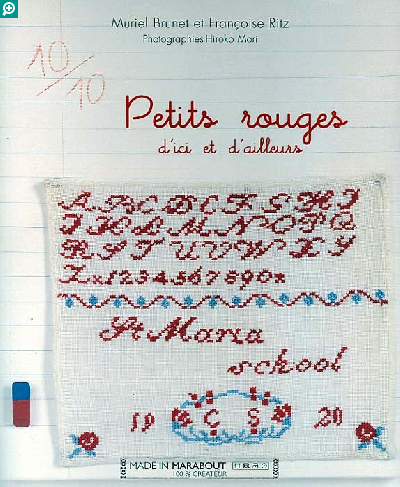 Muriel Brunet et Françoise Ritz
Photographies Hiroko Mori
10/10
Petits rouges
d'ici et d'ailleurs
A B C D E F G H I
J K L M N O P Q
R S T U V W X Y
Z x 1 2 3 4 5 6 7 8 9 0 x
St Maria
school
19 C S 20
MADE IN MARABOUT
100% CRÉATEUR